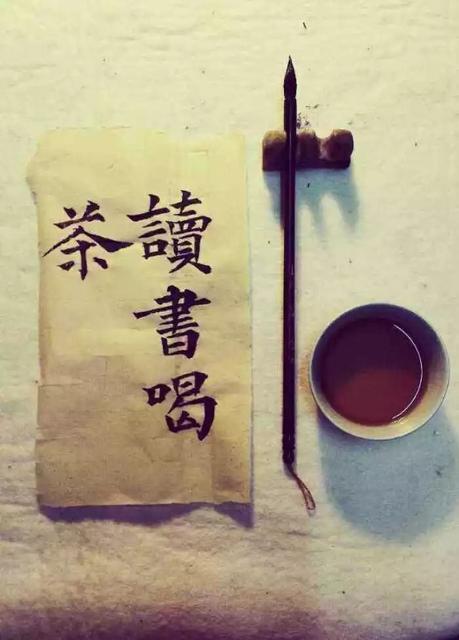 讀書喝
茶